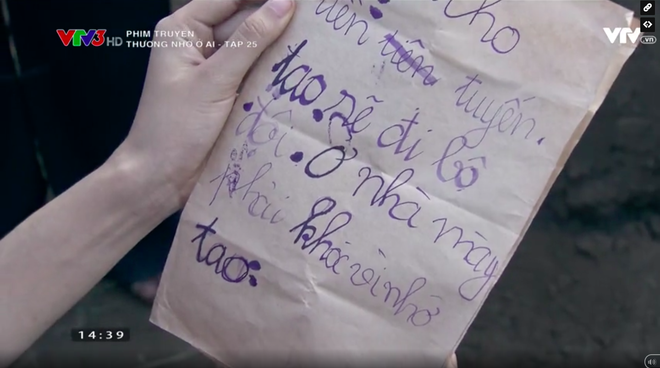 VTV3 HD
PHIM TRUYỆN
THƯƠNG NHỚ Ở AI - TẬP 25
VTV.vn
cho
tiền tuyến.
tao sẽ đi bộ
đôi. Ở nhà mày
phải khóc vì nhớ
tao.
14:39